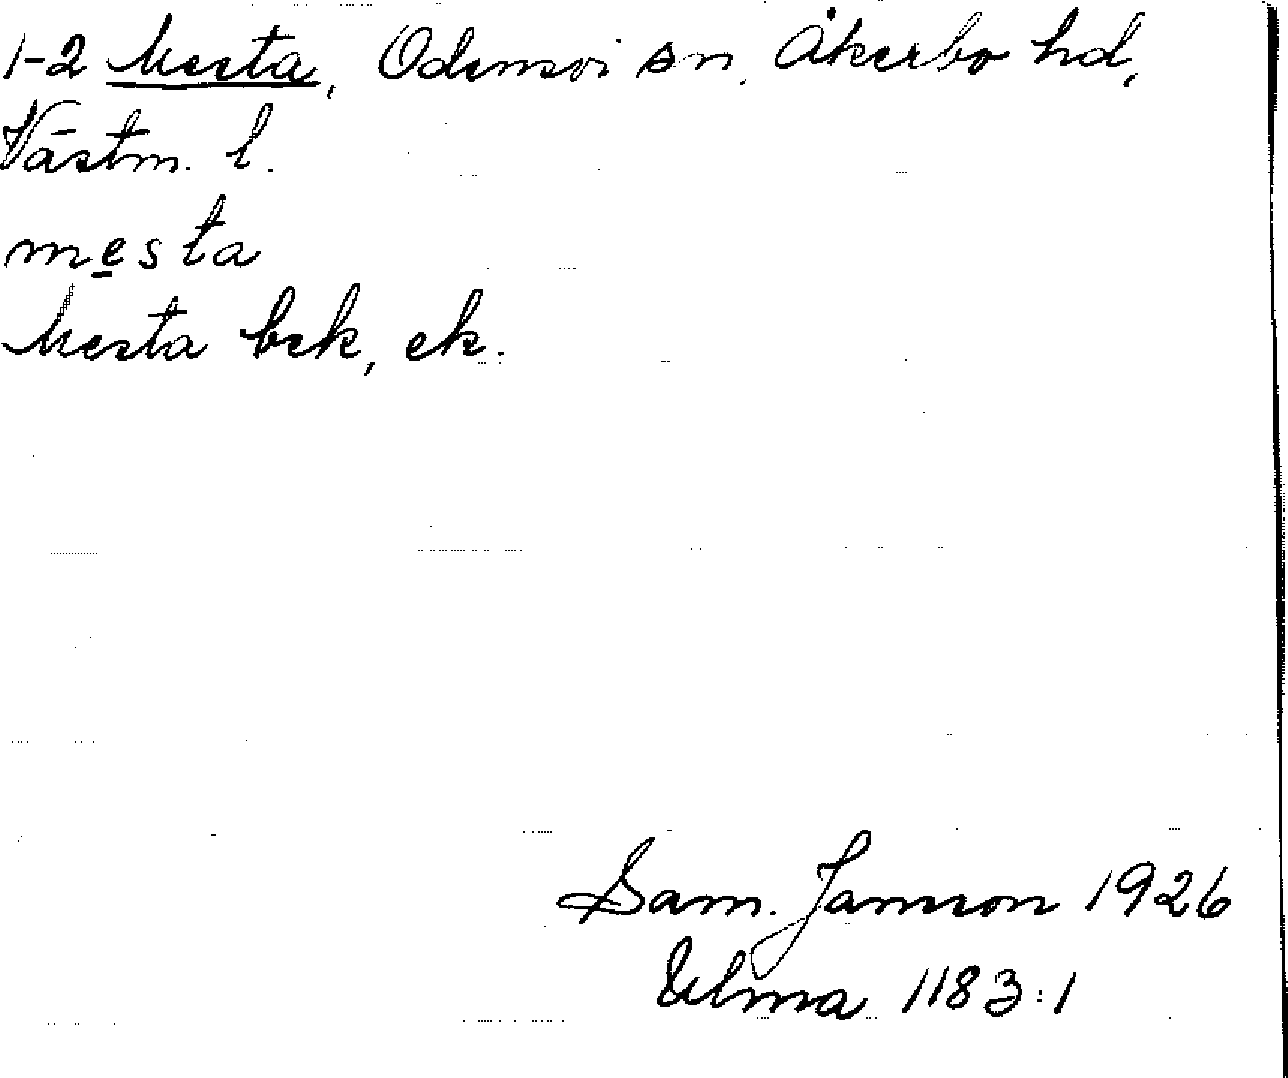 1-2 Mesta, Odensvi sn. Åkerbo hd,
Västm. l.
mesta
Mesta bsk, ek.
Sam. Jansson 1926
Ulma 1183:1